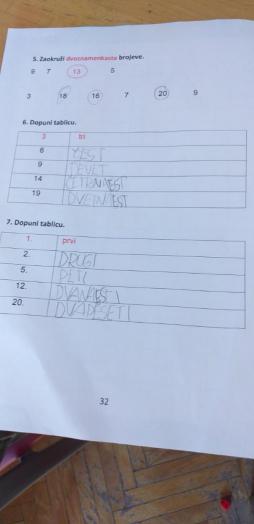 5. Zaokruži dvoznamenkaste brojeve.
9 7 13 5
3 18 16 7 20 9
6. Dopuni tablicu.
3 tri
6 ŠEST
9 DEVET
14 ČETRNAEST
19
7. Dopuni tablicu.
1. prvi
2. DRUGI
5. PETI
12. DVANAESTI
20. DVADESETI
32